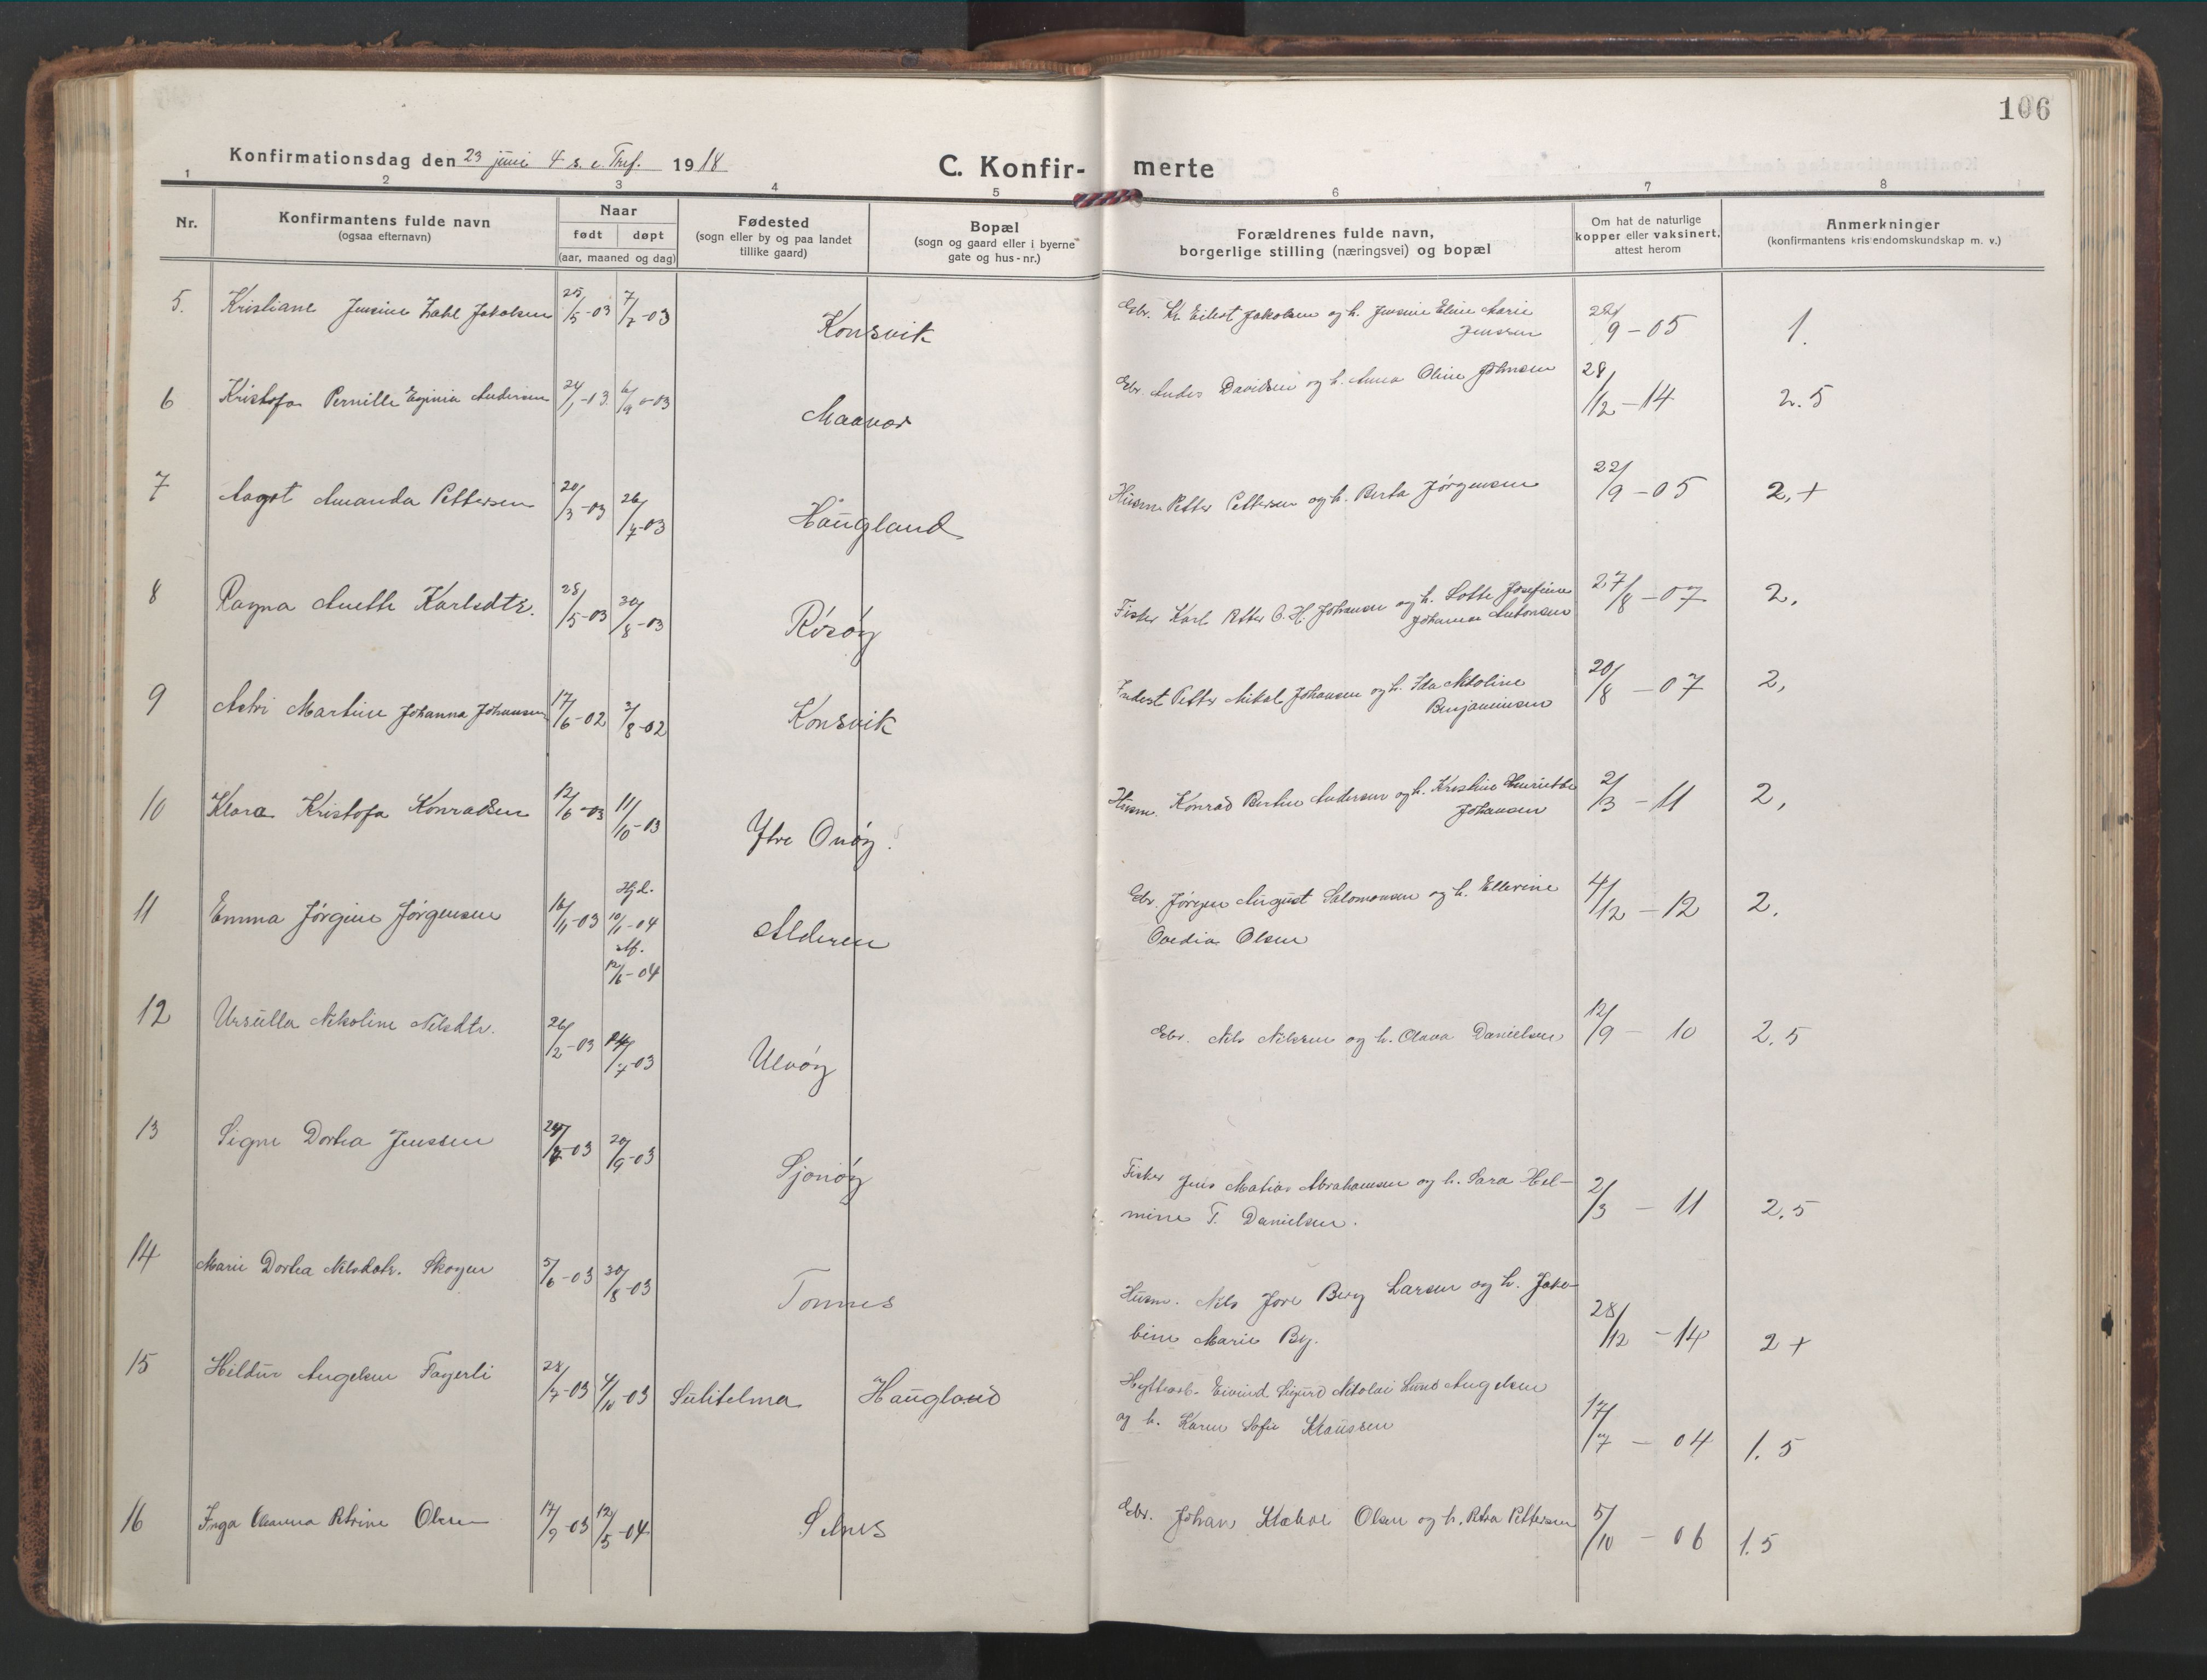 106
Konfirmationsdag den 23 juni 4 s. e. Tref. 1918
C. Konfir- merte
1 2 3 4 5 6 7 8
Nr.
Konfirmantens fulde navn
(ogsaa efternavn)
Naar
født døpt
(aar, maaned og dag)
Fødested
(sogn eller by og paa landet
tillike gaard)
Bopæl
(sogn og gaard eller i byerne
gate og hus-nr.)
Forældrenes fulde navn,
borgerlige stilling (næringsvei) og bopæl
Om hat de naturlige
kopper eller vaksinert,
attest herom
Anmerkninger
(konfirmantens kristendomskundskap m. v.)
5. Kristiane Jensine Zahl Jakobsen 25/5-03 7/7-03 Konsvik Gbr. Kr. Eilert Jakobsen og h. Jensine Eline Marie
Jenssen 9-05 1.
6 Kristofa Pernille Andersen 24/1-03 6/9-03 Maanes Gbr. Anders Davidsen og h. Anna Oline Johnsen 28/12-14 2.5
7 Aagot Amanda Pettersen 20/3-03 26/7-03 Haugland Husm. Petter Pettersen og h. Berta Jørgensen 22/9-05 2,+
8 Ragna Anette Karlsdtr. 28/5-03 30/8-03 Rósøy Fisker Karl Petter O. H. Johansen og h. Lotte Josefine
Johanna Antonsen 27/8-07 2,
9 Astri Martine Johanna Johansen 17/6-02 3/8-02 Konsvik Inderst Petter Nikolai Johansen og h. Ida Nikoline
Benjaminsen 20/8-07 2,
10 Klara Kristofa Konradsen 12/6-03 11/10-03 Ytre Onøy. Husm. Konrad Bertin Andersen og h. Kristine Henriette
Johansen 2/3-11 2,
11 Emma Jørgine Jørgensen 16/11-03 Hjd.
10/1-04
stf.
12/6-04 Alderen Gbr. Jørgen August Salomonsen og h. Ellevine
Ovedia Olsen 4/12-12 2.
12 Ursulla Nikoline Nilsdtr. 26/2-03 /7-03 Ulvøy Gbr. Nils Nilsen og h. Olava Danielsen 12/9-10 2.5
13 Signe Dortea Jenssen 20/9-03 Sjonøy Fisker Jens Matias Abrahamsen og h. Sara Hel-
mine T. Danielsen. 2/3-11 2.5
14 Marie Dortea Nilsdotr. Skogen 5/6-03 30/8-03 Tonnes Husm. Nils Jore Berg Larsen og h. Jako-
bine Marie By. 28/12-14 2+
15 Hildur Angelsen Fagerli 28/7-03 4/10-03 Sulitelma Haugland Hyttearb. Eivind Sigurd Nikolai Lund Angelsen
og h. Karen Sofie Klaussen 17/7-04 1.5
16 Inga Oleanna Petrine Olsen 17/9-03 12/5-04 Selnes Gbr. Johan Klæboe Olsen og h. Petra Pettersen 5/10-06 1.5